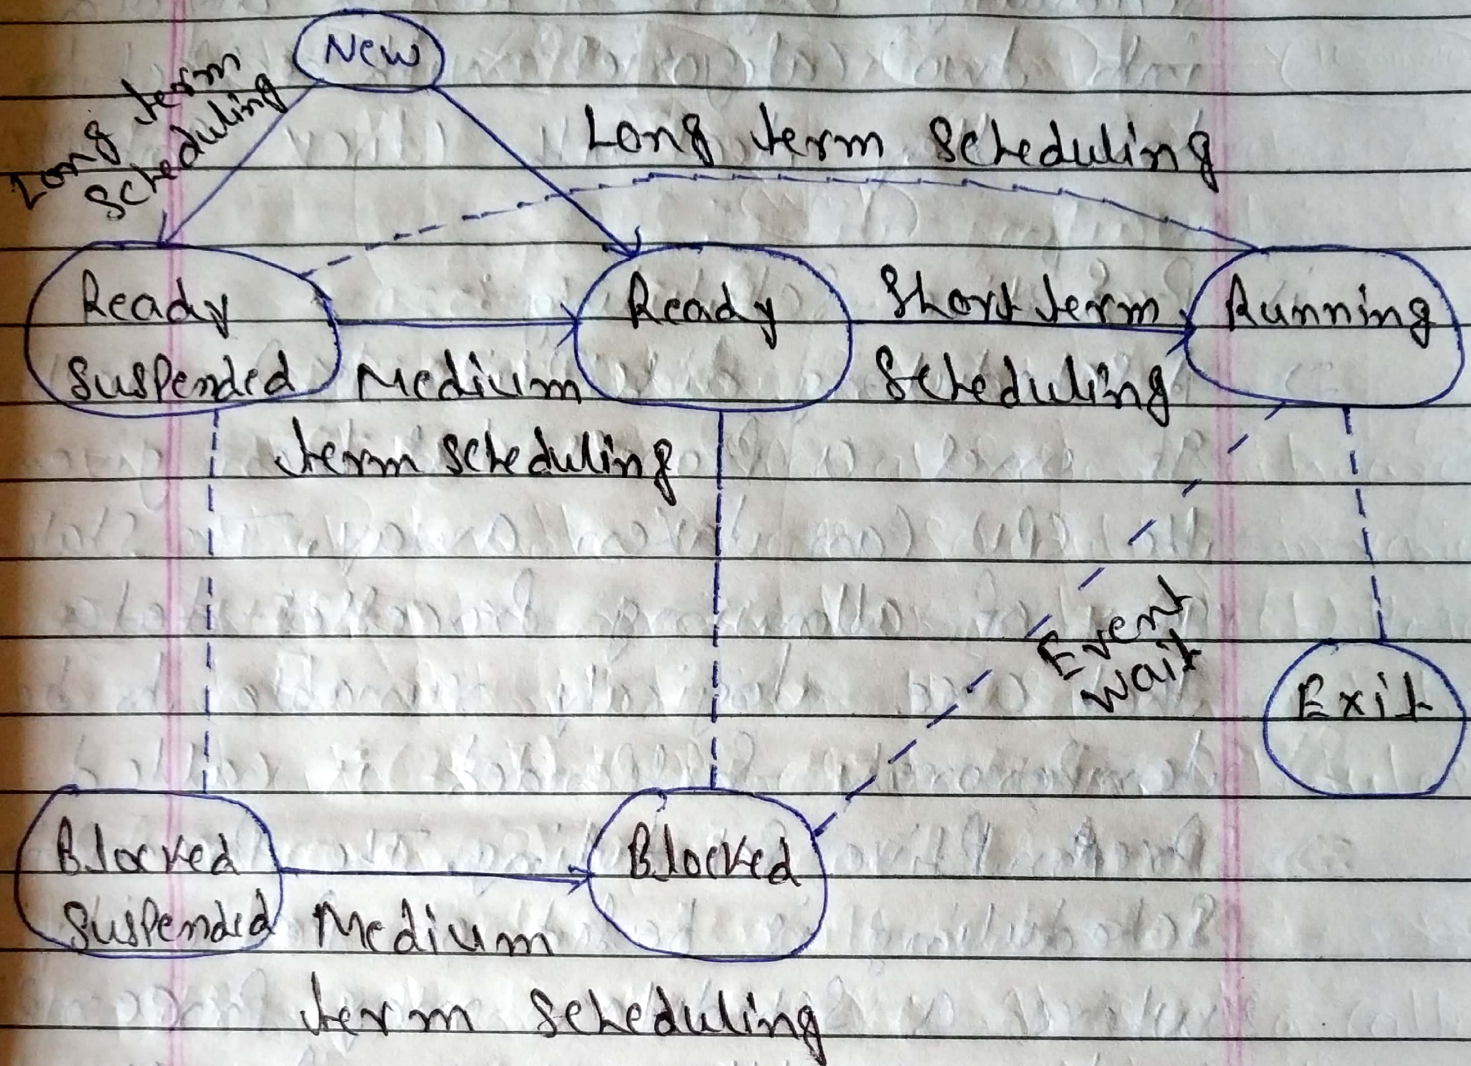 New
Long term
Scheduling
Long term Scheduling
Ready
Suspended
Ready
Short term
Scheduling
Running
Medium
term scheduling
Event
wait
Exit
Blocked
Suspended
Blocked
Medium
term Scheduling